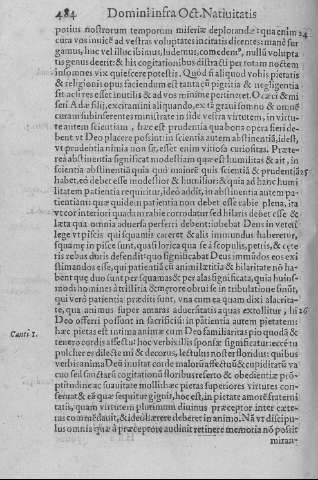 484 Domini infra Oct. Natiuitatis
potius nostrorum temporum miseriæ deplorandæ: qua enim 24
cura vos inuicẽ ad vestras voluptates incitatis dicentes: manè sur
gamus, huc vel illuc ibimus, ludemus, comedemꝰ, nullũ volupta
tis genus deerit: & his cogitationibus distracti per totam noctem
insomnes vix quiescere potestis. Quòd si aliquod vobis pietatis
& religionis opus faciendum est tanta cũ pigritia & negligentia
fit ac si res esset inutilis & ad vos minimè pertineret. O cæci & mi
seri Adæ filij, excitamini aliquando, ex tã graui somno & omnẽ
curam subinferentes ministrate in fide vestra virtutem, in virtu-
te autem scientiam, hæc est prudentia qua bona opera fieri de-
bent vt Deo placere possint in scientia autem abstinentiã, idest,
vt prudentia nimia non sit, esset enim vitiosa curiositas. Præte-
rea abstinentia significat modestiam quæ est humilitas & ait, in
scientia abstinentiã quia quò maiorẽ quis scientiã & prudentiã 25
habet, eò debet esse modestior & humilior: & quia ad hanc humi
litatem patientia requiritur, ideo addit, in abstinentia autem pa-
tientiam: quæ quidem patientia non debet esse rabie plena, ita
vt cor interiori quadam rabie corrodatur sed hilaris debet esse &
læta qua omnia aduersa perferri debent: iubebat Deus in veteri
lege vt piscis qui squamis careret & alis immundus haberetur,
squamę in pisce sunt, quasi lorica qua se à scopulis, petris, & cęte
ris rebus duris defendit: quo significabat Deus immũdos eos exi
stimandos esse, qui patientiã cũ animi lætitia & hilaritate nõ ha-
bent quę duo sunt per squamas & per alas significata, quia huius-
modi homines à tristitia & męrore obrui se in tribulatione sinũt,
qui verò patientia præditi sunt, vna cum ea quam dixi alacrita-
te, qua animus super amaras aduersitatis aquas extollitur, hi 26
Deo offerri possunt in sacrificiũ in patiẽtia autem pietatem:
hæc pietas est intima animæ cum Deo familiaritas pio quodã &
Canti 1. tenero cordis affectu: hoc verbis illis sponsæ significatur: ecce tu
pulcher es dilecte mi & decorus, lectulus noster floridus: quibus
verbis anima Deũ inuitat corde maiorũ affectuũ & cupiditatũ va
cuo sed sanctarũ cogitationũ floribus referto & obedientiæ prõ-
ptitudine ac suauitate molli hæc pietas superiores virtutes con-
seruat & ea quæ sequitur gignit, hoc est, in pietate amorẽ fraterni
tatis, quam virtutem plurimum diuinus præceptor inter cæte-
ras commẽdauit, & ideo hærere deberet in animo. Nã vt discipu-
lus omnia quæ à præceptore audiuit retinere memoria nõ possit
miran-